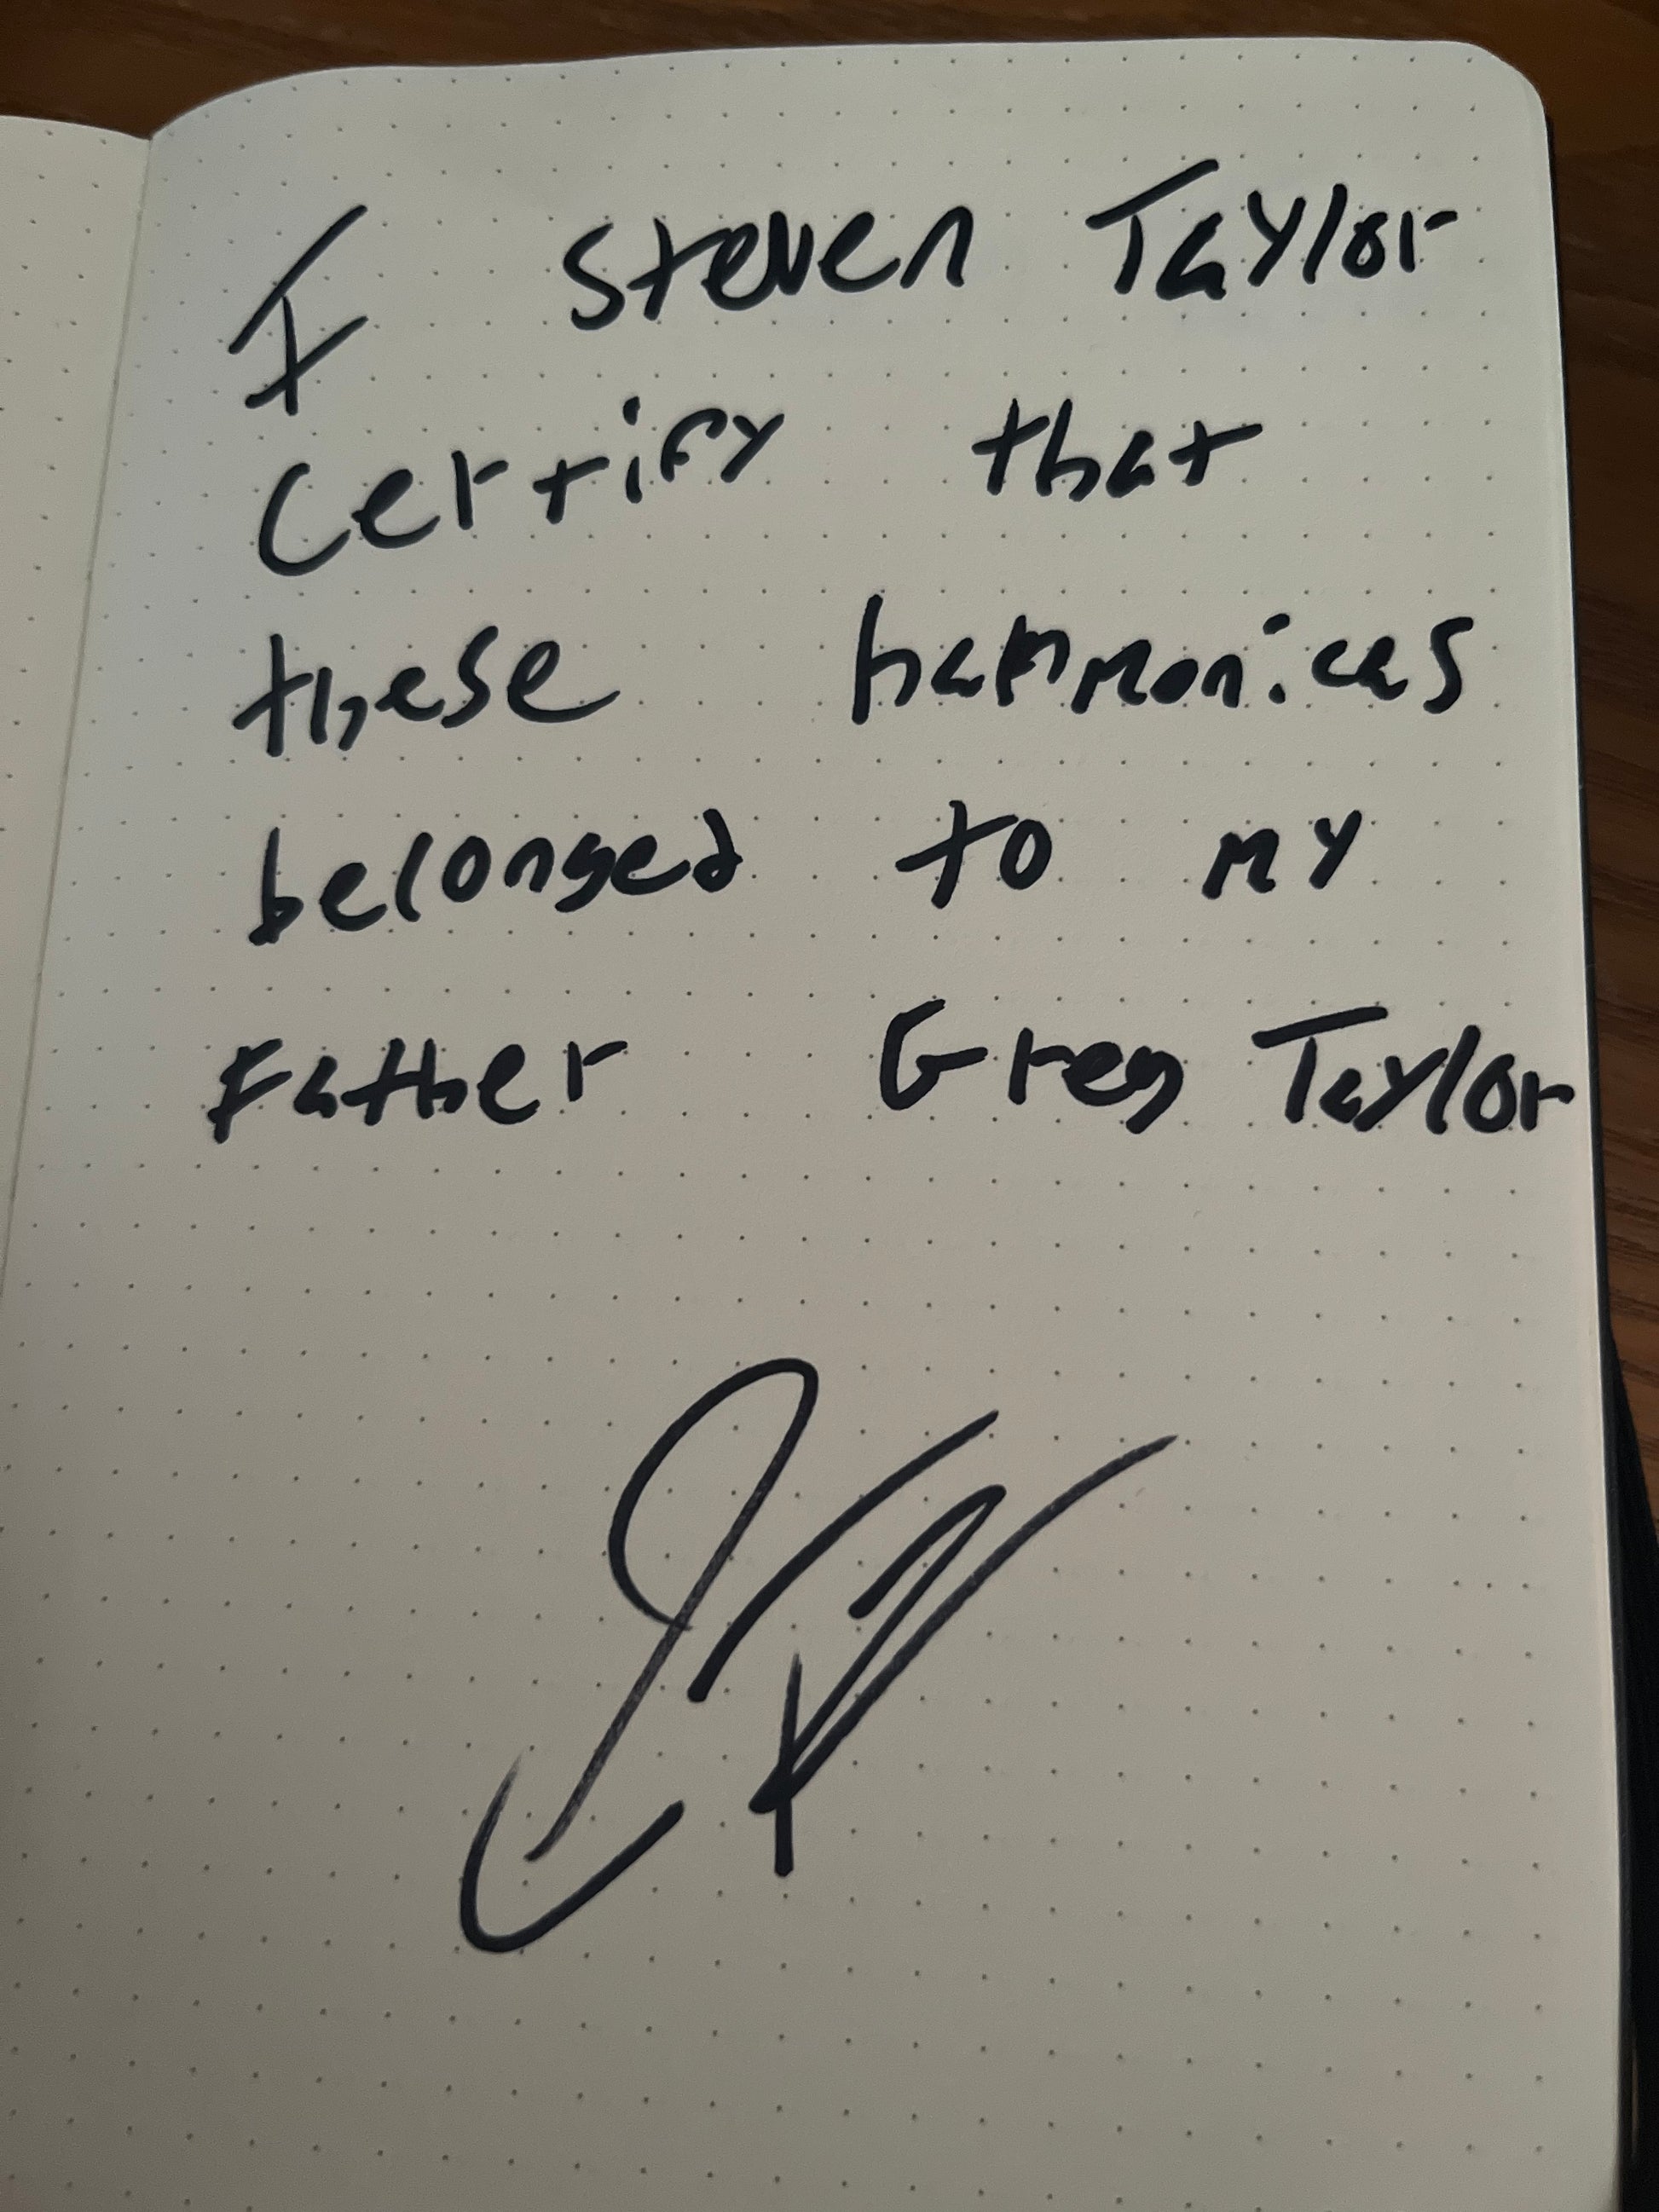 I Steven Taylor
Certify that
these harmonicas
belonged to my
Father Greg Taylor